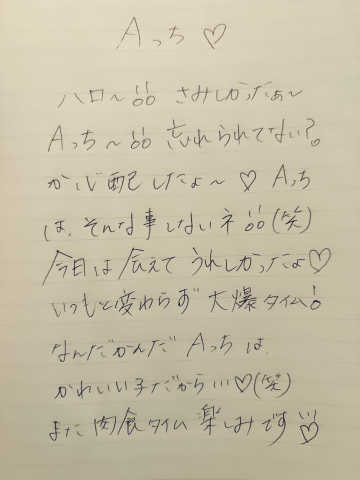 Aっち♡
ハロ〜!!! さみしかったぁ〜
Aっち〜!!! 忘れられてない?。
か心配したょ〜♡ Aっち
は、そんな事しないネ!!!(笑)
今日は会えてうれしかったょ♡
いつもと変わらず大爆タイム!
なんだかんだAっちは、
かわいい子だから…♡(笑)
また肉食タイム楽しみです!!♡